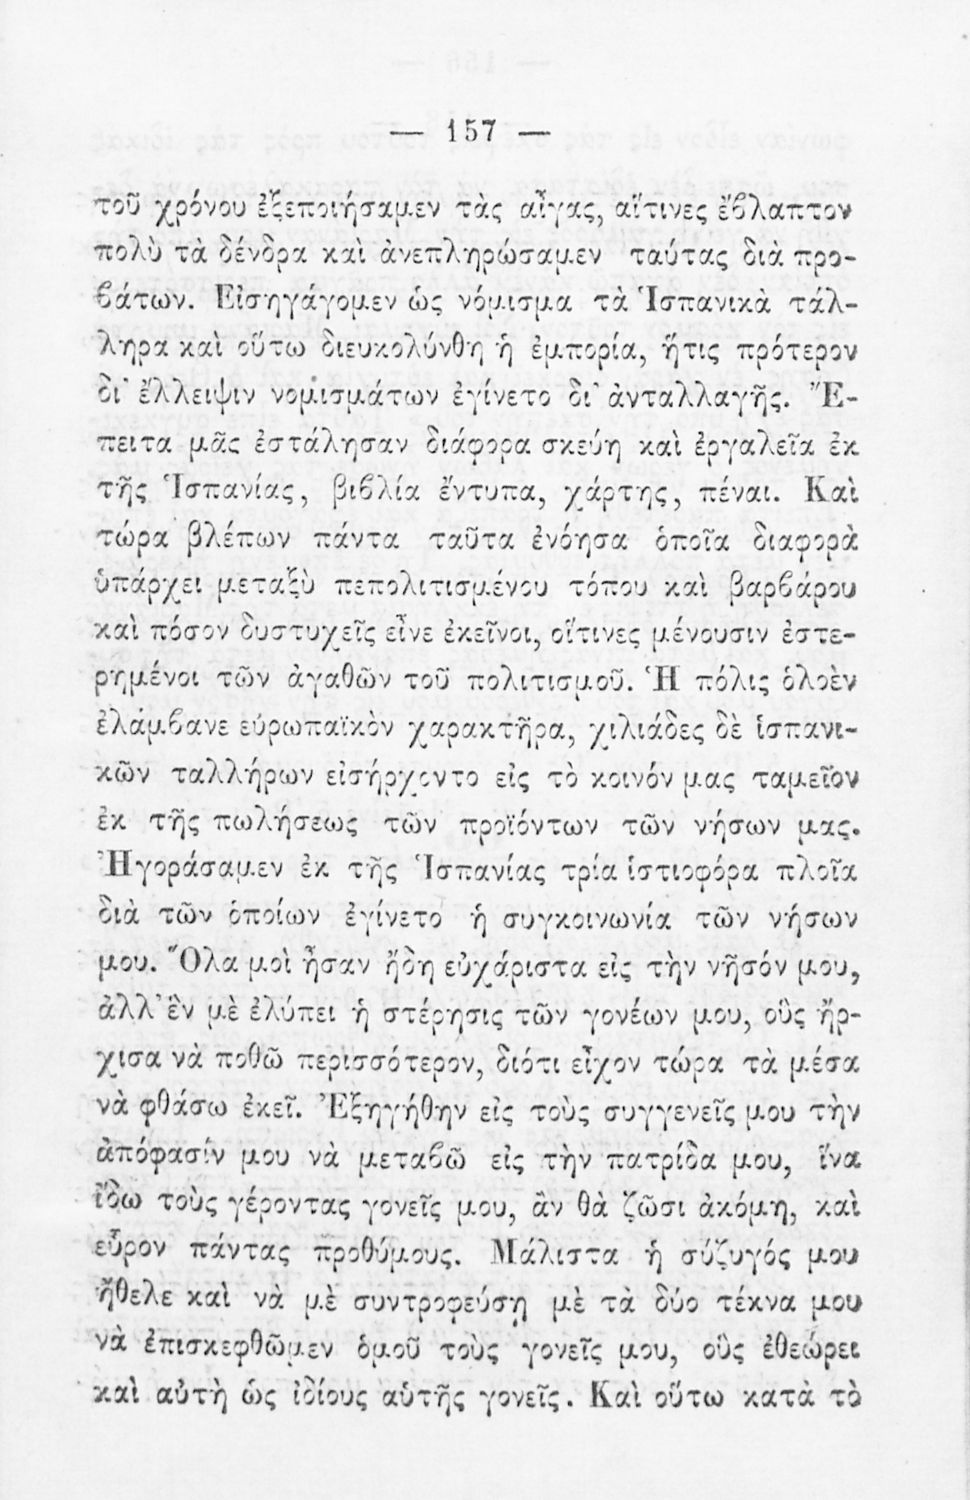 — 157 —
τοῦ χρόνου ἐξεποιήσαμεν τὰς αἶγας, αἵτινες ἔβλαπτον
πολὺ τὰ δένδρα καὶ ἀνεπληρώσαμεν ταύτας διὰ προ-
βάτων. Εἰσηγάγομεν ὡς νόμισμα τὰ Ἱσπανικὰ τάλ-
ληρα καὶ οὕτω διευκολύνθη ἡ ἐμπορία, ἥτις πρότερον
δι' ἔλλειψιν νομισμάτων ἐγίνετο δι' ἀνταλλαγῆς. Ἔ-
πειτα μᾶς ἐστάλησαν διάφορα σκεύη καὶ ἐργαλεῖα ἐκ
τῆς Ἱσπανίας, βιβλία ἔντυπα, χάρτης, πέναι. Καὶ
τώρα βλέπων πάντα ταῦτα ἐνόησα ὁποῖα διαφορὰ
ὑπάρχει μεταξὺ πεπολιτισμένου τόπου καὶ βαρβάρου
καὶ πόσον δυστυχεῖς εἶνε ἐκεῖνοι, οἵτινες μένουσιν ἐστε-
ρημένοι τῶν ἀγαθῶν τοῦ πολιτισμοῦ. Ἡ πόλις ὁλοὲν
ἐλάμβανε εὐρωπαϊκὸν χαρακτῆρα, χιλιάδες δὲ ἱσπανι-
κῶν ταλλήρων εἰσήρχοντο εἰς τὸ κοινόν μας ταμεῖον
ἐκ τῆς πωλήσεως τῶν προϊόντων τῶν νήσων μας.
Ἠγοράσαμεν ἐκ τῆς Ἱσπανίας τρία ἱστιοφόρα πλοῖα
διὰ τῶν ὁποίων ἐγίνετο ἡ συγκοινωνία τῶν νήσων
μου. Ὅλα μοὶ ἦσαν ἤδη εὐχάριστα εἰς τὴν νῆσόν μου,
ἀλλ' ἓν μὲ ἐλύπει ἡ στέρησις τῶν γονέων μου, οὓς ἤρ-
χισα νὰ ποθῶ περισσότερον, διότι εἶχον τώρα τὰ μέσα
νὰ φθάσω ἐκεῖ. Ἐξηγήθην εἰς τοὺς συγγενεῖς μου τὴν
ἀπόφασίν μου νὰ μεταβῶ εἰς τὴν πατρίδα μου, ἵνα
ἴδω τοὺς γέροντας γονεῖς μου, ἂν θὰ ζῶσι ἀκόμη, καὶ
εὗρον πάντας προθύμους. Μάλιστα ἡ σύζυγός μου
ἤθελε καὶ νὰ μὲ συντροφεύσῃ μὲ τὰ δύο τέκνα μου
νὰ ἐπισκεφθῶμεν ὁμοῦ τοὺς γονεῖς μου, οὓς ἐθεώρει
καὶ αὐτὴ ὡς ἰδίους αὑτῆς γονεῖς. Καὶ οὕτω κατὰ τὸ